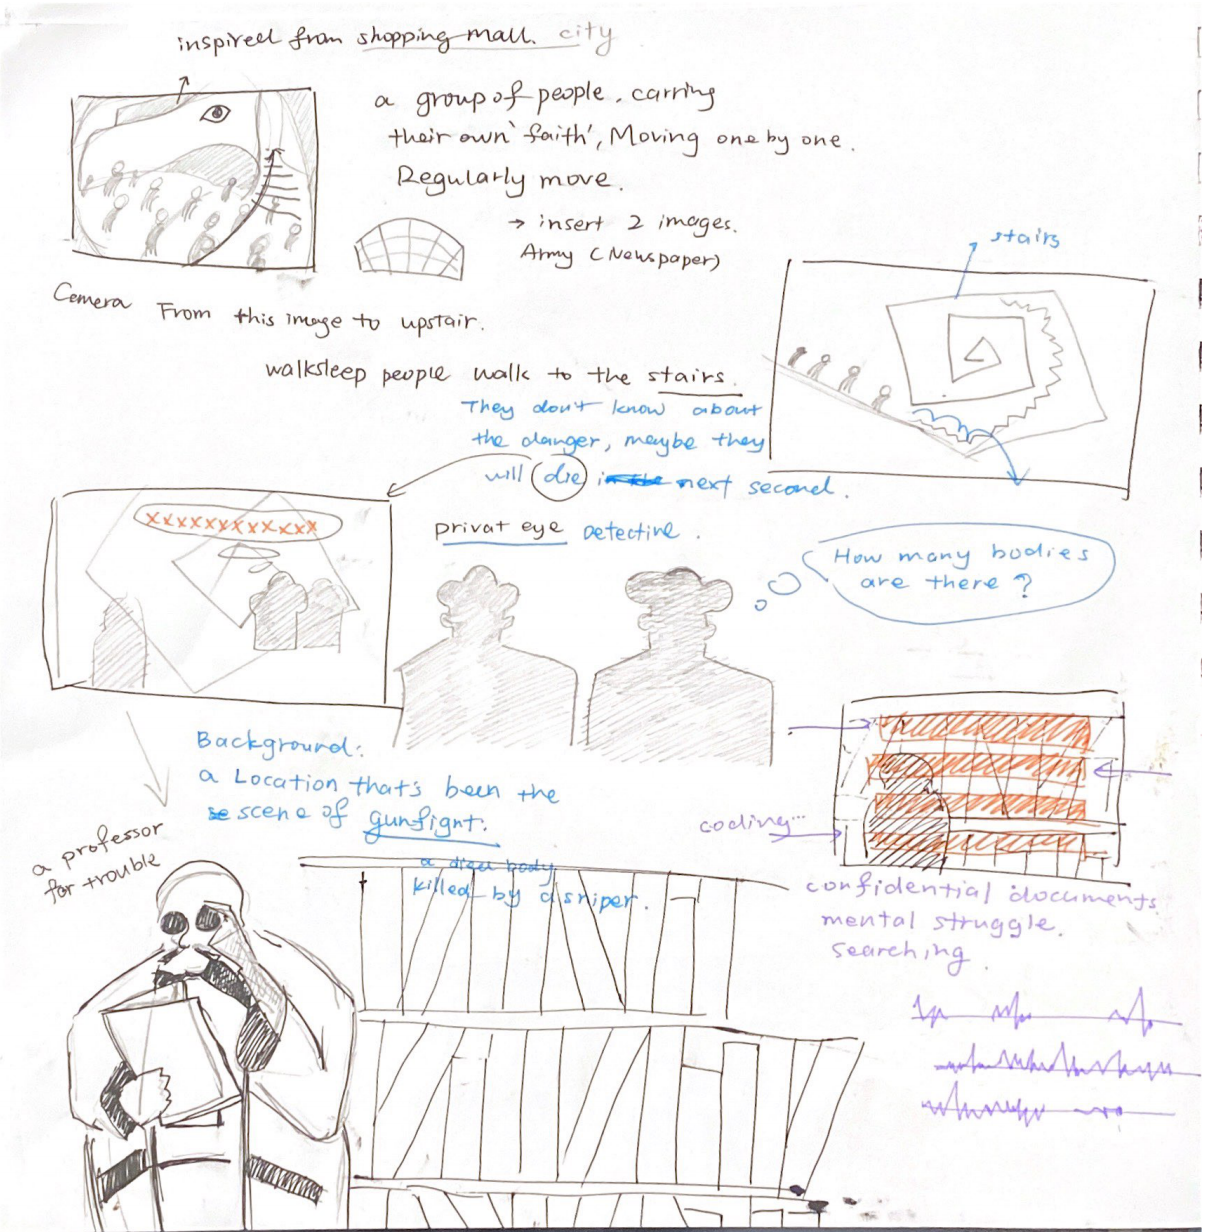 inspired from shopping mall. city
a group of people, carring
their own 'faith', Moving one by one.
Regularly move.
→ insert 2 images.
Army (Newspaper)
stairs
Camera From this image to upstair.
walksleep people walk to the stairs.
They don't know about
the danger, maybe they
will die next second.
xxxxxxxxxxxx
privat eye Detective.
How many bodies
are there?
Background:
a Location that's been the
scene of gunfight.
a dead body
killed by a sniper.
a professor
for trouble
coding...
confidential documents
mental struggle.
searching.